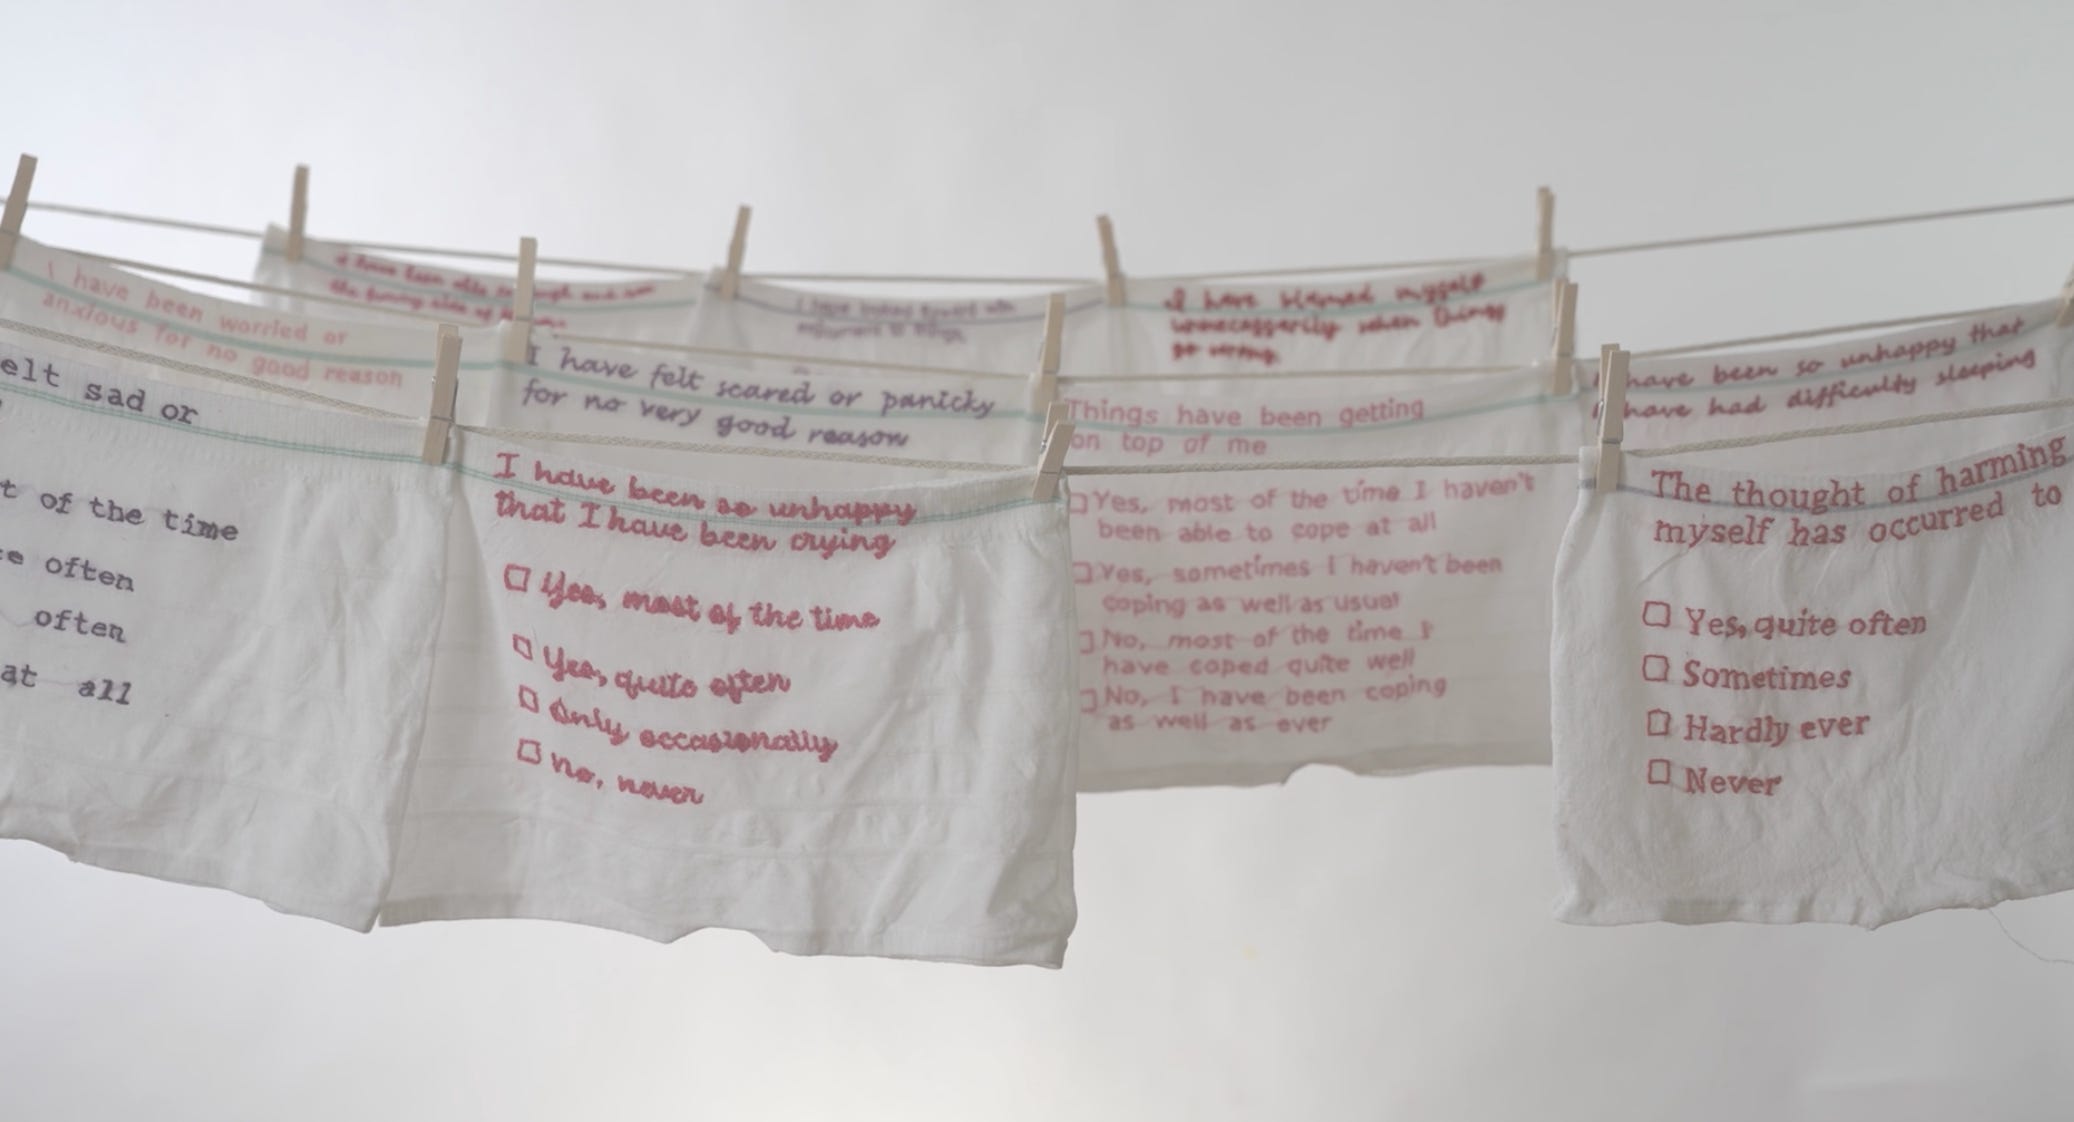 I have been worried or
anxious for no good reason
I have blamed myself
unnecessarily when things
go wrong.
I have felt scared or panicky
for no very good reason
Things have been getting
on top of me
Yes, most of the time I haven't
been able to cope at all
Yes, sometimes I haven't been
coping as well as usual
No, most of the time I
have coped quite well
No, I have been coping
as well as ever
have been so unhappy that
have had difficulty sleeping
elt sad or
t of the time
e often
often
at all
I have been so unhappy
that I have been crying
Yes, most of the time
Yes, quite often
Only occasionally
no, never
The thought of harming
myself has occurred to
Yes, quite often
Sometimes
Hardly ever
Never